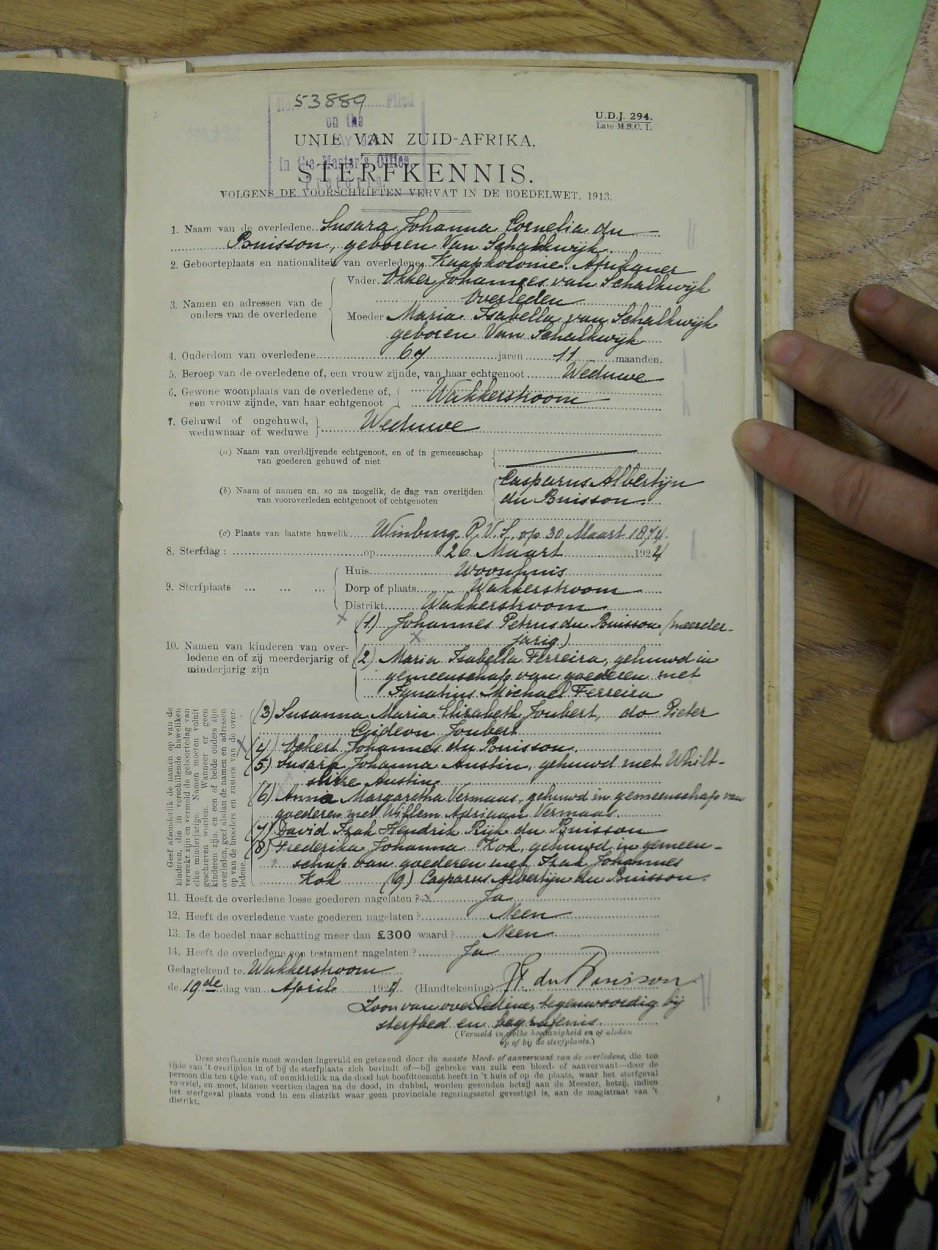 53889
Filed
on the
in the Master's Office
U.D.J. 294.
Late M.S.C. 1.
UNIE VAN ZUID-AFRIKA.
STERFKENNIS.
VOLGENS DE VOORSCHRIFTEN VERVAT IN DE BOEDELWET, 1913.
1. Naam van de overledene Susara Johanna Cornelia du
Buisson, geboren Van Schalkwijk
2. Geboorteplaats en nationaliteit van overledene Kaapkolonie. Afrikaner
3. Namen en adressen van de ouders van de overledene
Vader Okker Johannes van Schalkwijk
Overleden
Moeder Maria Isabella van Schalkwijk
geboren Van Schalkwijk
4. Ouderdom van overledene 67 jaren 11 maanden.
5. Beroep van de overledene of, een vrouw zijnde, van haar echtgenoot Weduwe
6. Gewone woonplaats van de overledene of, een vrouw zijnde, van haar echtgenoot Wakkerstroom
7. Gehuwd of ongehuwd, weduwnaar of weduwe Weduwe
(a) Naam van overblijvende echtgenoot, en of in gemeenschap
van goederen gehuwd of niet
(b) Naam of namen en, zo na mogelik, de dag van overlijden
van vooroverleden echtgenoot of echtgenoten
Casparus Albertijn
du Buisson.
(c) Plaats van laatste huwelik Winburg O.V.S. op 30 Maart 1874.
8. Sterfdag: op 26 Maart 1924
9. Sterfplaats ... ... ...
Huis Woonhuis
Dorp of plaats Wakkerstroom
Distrikt Wakkerstroom
10. Namen van kinderen van over-
ledene en of zij meerderjarig of
minderjarig zijn
(1) Johannes Petrus du Buisson (meerder-
jarig)
(2) Maria Isabella Ferreira, gehuwd in
gemeenschap van goederen met
Ignatius Michael Ferreira
(3) Susanna Maria Elizabeth Joubert, do Pieter
Gideon Joubert
(4) Ockert Johannes du Buisson.
(5) Susara Johanna Austin, gehuwd met Whilt-
shire Austin
(6) Anna Margaretha Vermaas, gehuwd in gemeenschap van
goederen met Willem Adriaan Vermaas.
(7) David Izak Hendrik Rijk du Buisson
(8) Frederika Johanna Kok, gehuwd in gemeen-
schap van goederen met Izak Johannes
Kok (9) Casparus Albertijn du Buisson.
Geef afzonderlik de namen op van de
kinderen, die in verschillende huweliken
verwekt zijn en vermeld de geboortedag van
elke minderjarige. Namen moeten voluit
geschreven worden. Wanneer er geen
kinderen zijn, en een of beide ouders zijn
overleden, geef alsdan de namen en adressen
op van de broeders en zusters van de over-
ledene.
11. Heeft de overledene losse goederen nagelaten? Ja
12. Heeft de overledene vaste goederen nagelaten? Neen
13. Is de boedel naar schatting meer dan £300 waard? Neen
14. Heeft de overledene een testament nagelaten? Ja
Gedagtekend te Wakkerstroom
de 19de dag van April 1924 (Handtekening) du Buisson
Zoon van overledene, tegenwoordig bij
sterfbed en begrafenis.
(Vermeld in welke hoedanigheid en of alsdan
of bij de sterfplaats.)
Deze sterfkennis moet worden ingevuld en getekend door de naaste bloed- of aanverwant van de overledene, die ten
tijde van 't overlijden in of bij de sterfplaats zich bevindt of—bij gebreke van zulk een bloed- of aanverwant—door de
persoon die ten tijde van, of onmiddellik na de dood het hoofdtoezicht heeft in 't huis of op de plaats, waar het sterfgeval
voorviel, en moet, binnen veertien dagen na de dood, in dubbel, worden gezonden hetzij aan de Meester, hetzij, indien
het sterfgeval plaats vond in een distrikt waar geen provinciale regeringszetel gevestigd is, aan de magistraat van 't
distrikt.